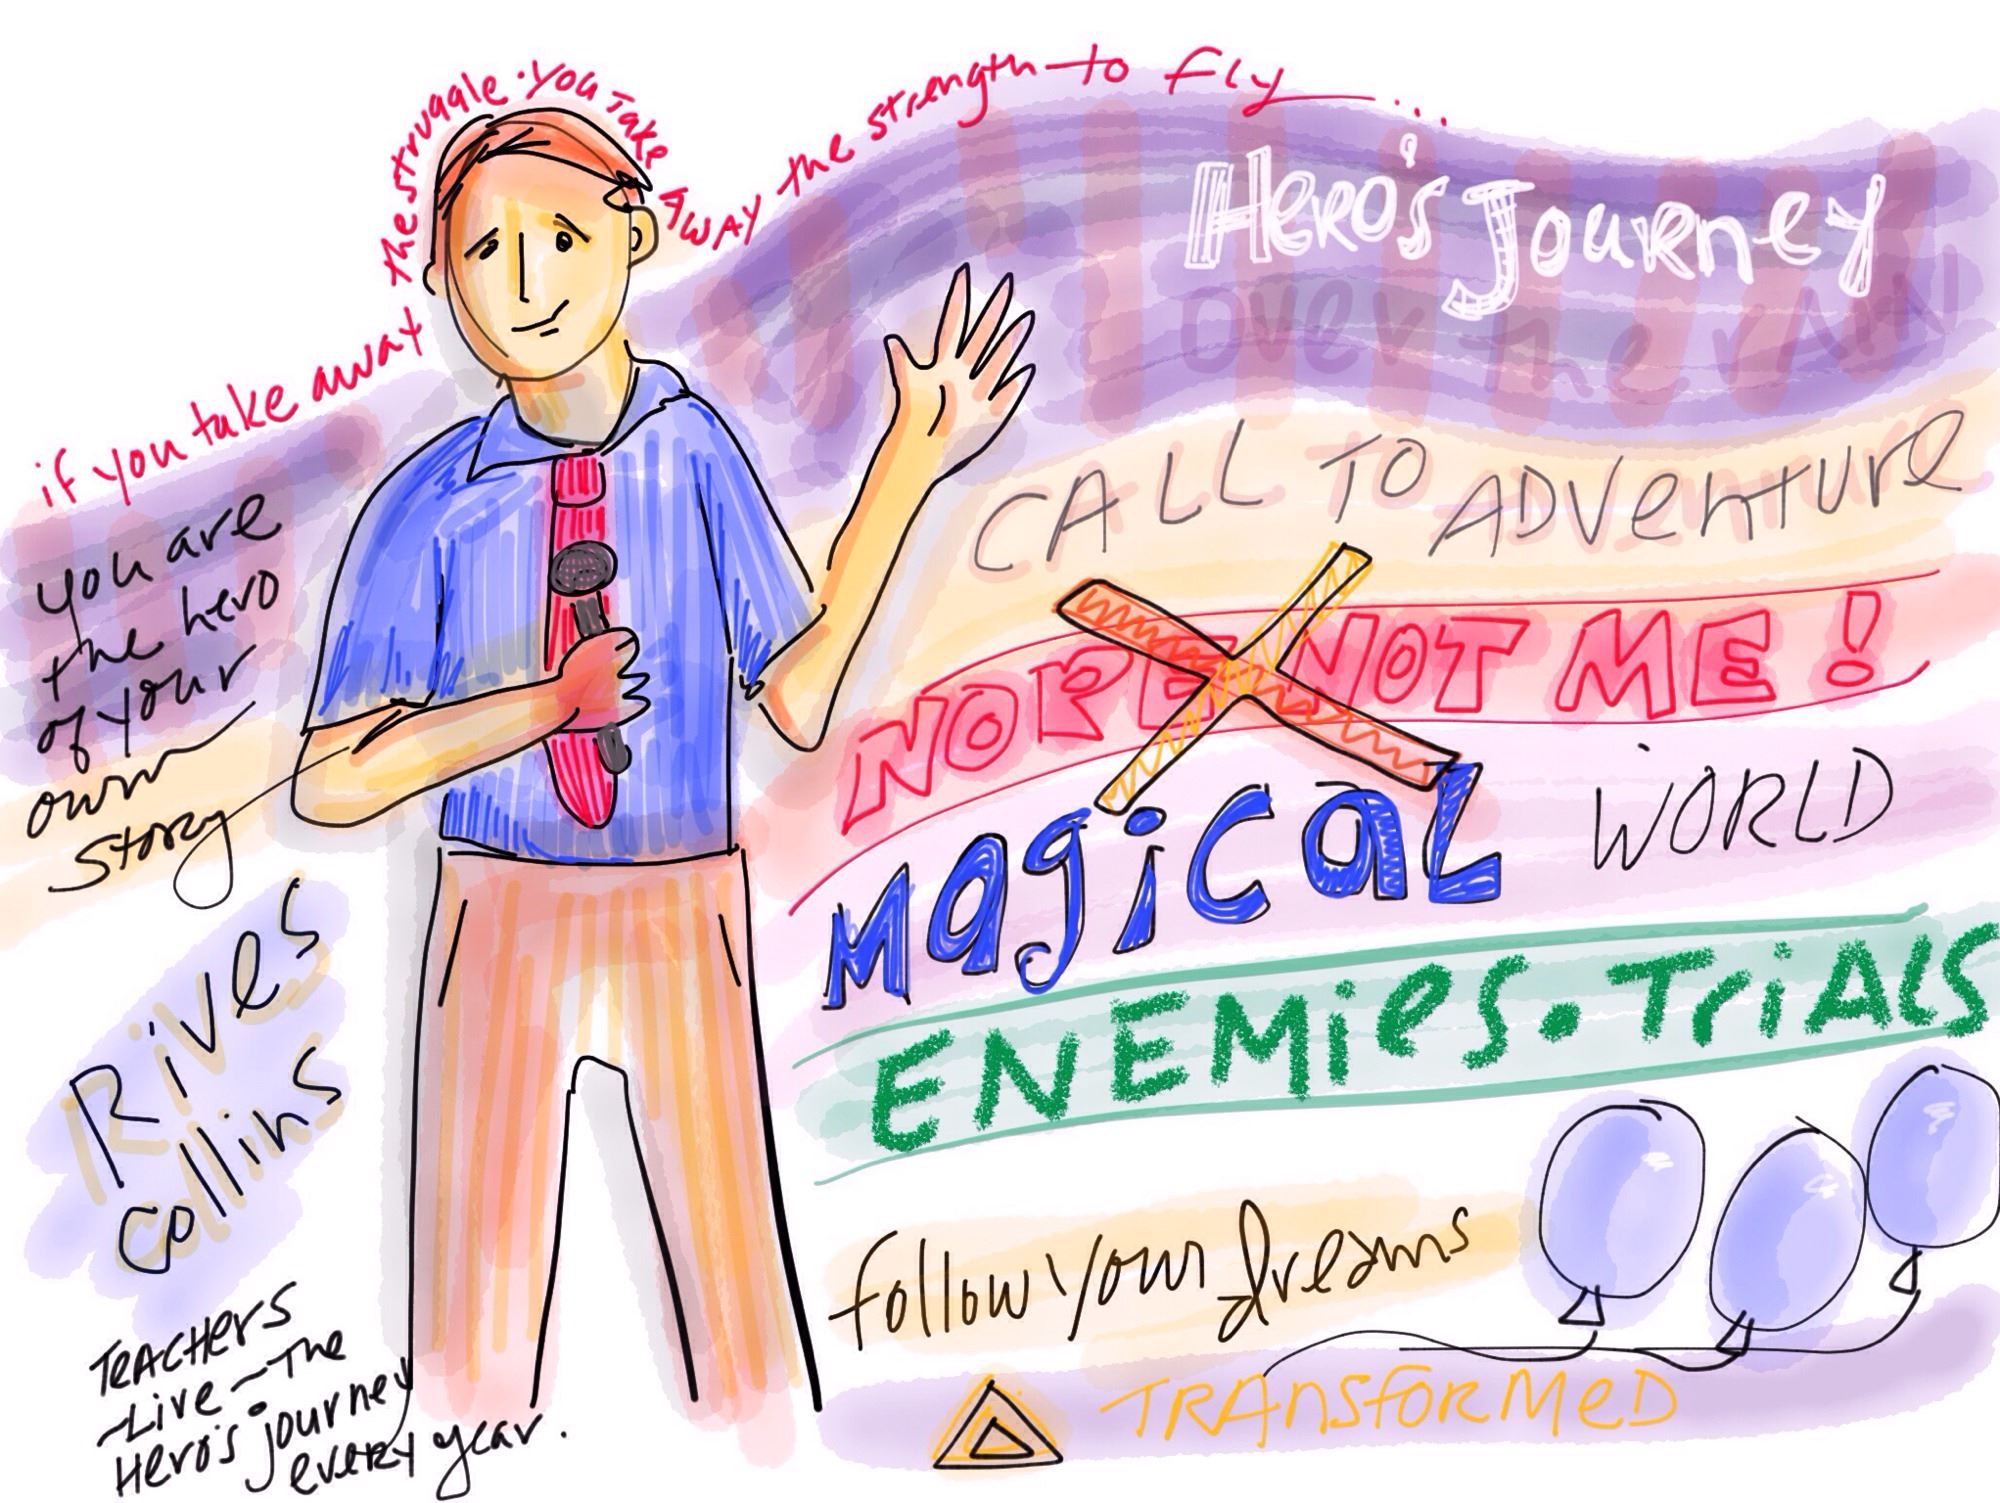 if you take away the struggle. you take away the strength to fly...
Hero's Journey
over the rain
you are
the hero
of your
own
story
CALL TO ADVenture
NOPE NOT ME!
MAgical WORLD
ENEMies. TriAls
Rives
collins
follow your dreams
TRAnsforMeD
TeACHers
~Live~The
Hero's journey
every year.